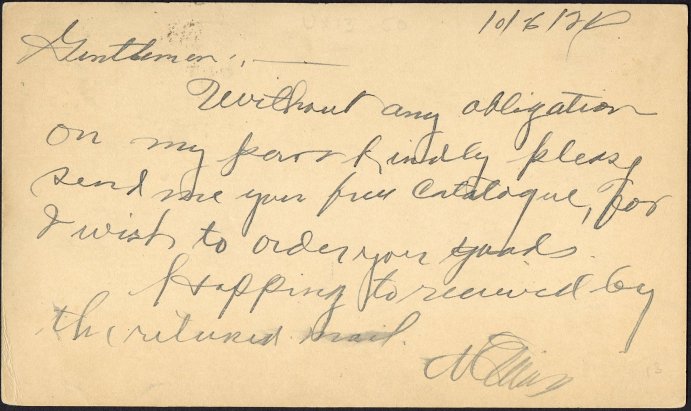 10/6/24
Gentlemen:,
Without any obligation
on my person kindly please
send me your free Catalogue, for
I wish to order your goods.
Hopping to received by
the returned mail.